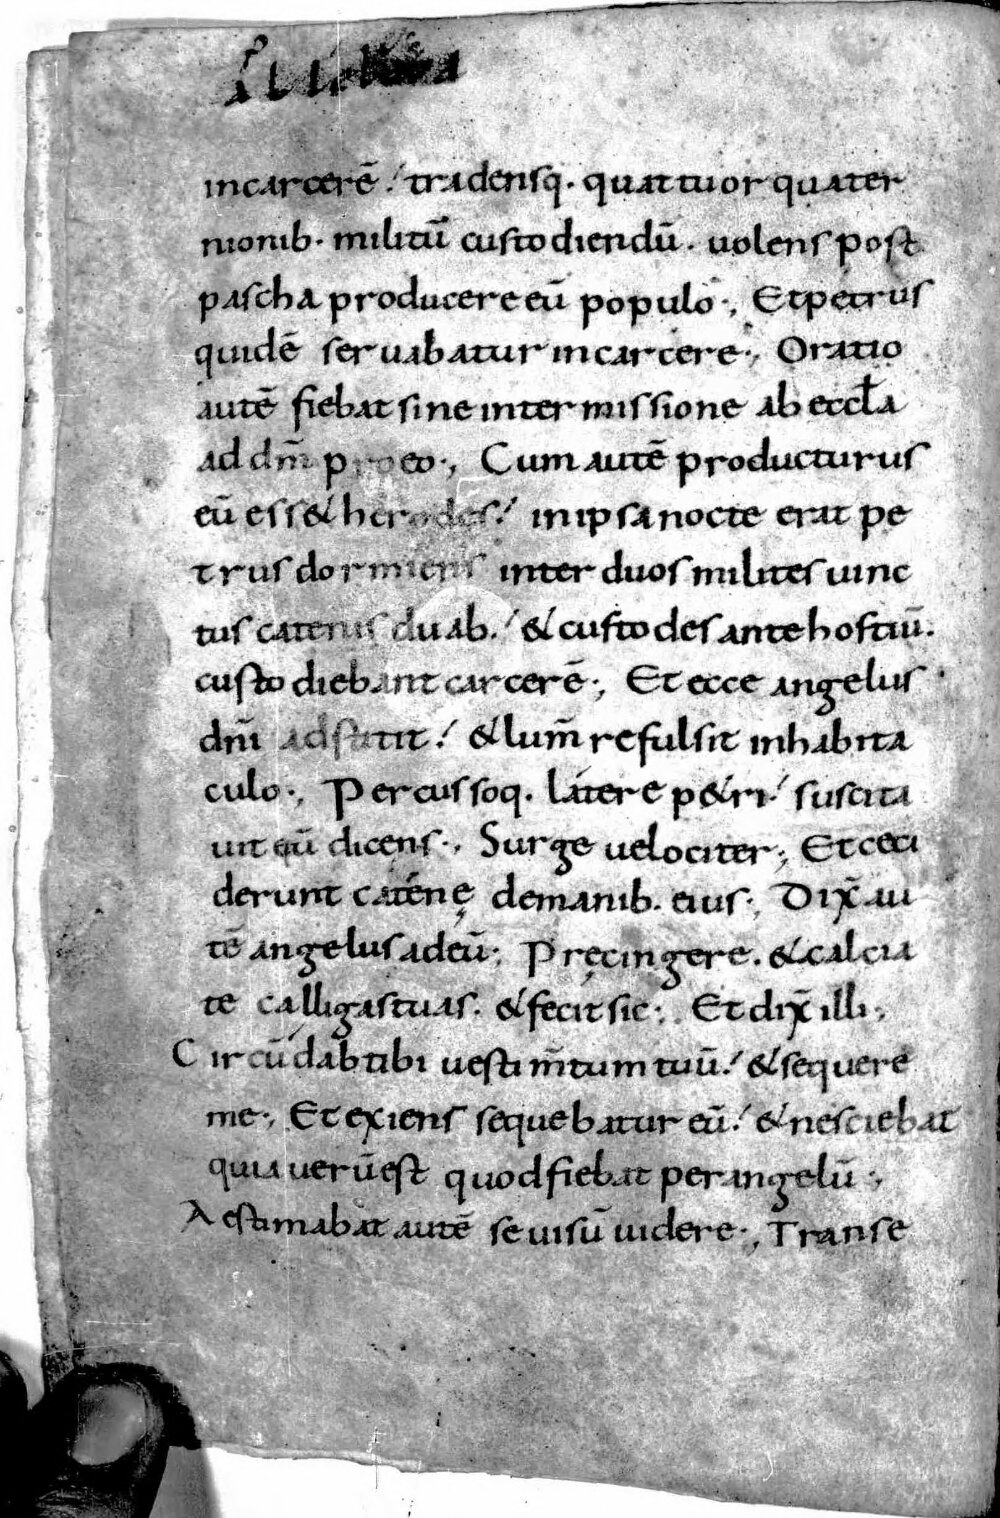 incarcerē. tradensq· quattuor quater
nionib· militū custodiendū· uolens post
pascha producere eū populo·, Et petrus
quidē seruabatur in carcere·, Oratio
autē fiebat sine intermissione ab eccl̄a
ad dm̄ pro eo·, Cum autē producturus
eū ess& herodes. in ipsa nocte erat pe
trus dormiens inter duos milites uinc
tus catenis duab· & custodes ante hostiū·
custodiebant carcerē·, Et ecce angelus
dn̄i adstitit. & lum̄ refulsit in habita
culo·, Percussoq· latere p&ri. suscita
uit eū dicens·, Surge uelociter·, Et ceci
derunt catenę de manib· eius·, Dix̄ au
tē angelus ad eū·, Pręcingere· & calcia
te calligas tuas· & fecit sic·, Et dix̄ illi·,
Circūda tibi uestim̄tum tuū. & sequere
me·, Et exiens sequebatur eū. & nesciebat
quia uerū est quod fiebat per angelū·,
Aestimabat autē se uisū uidere·, Transe